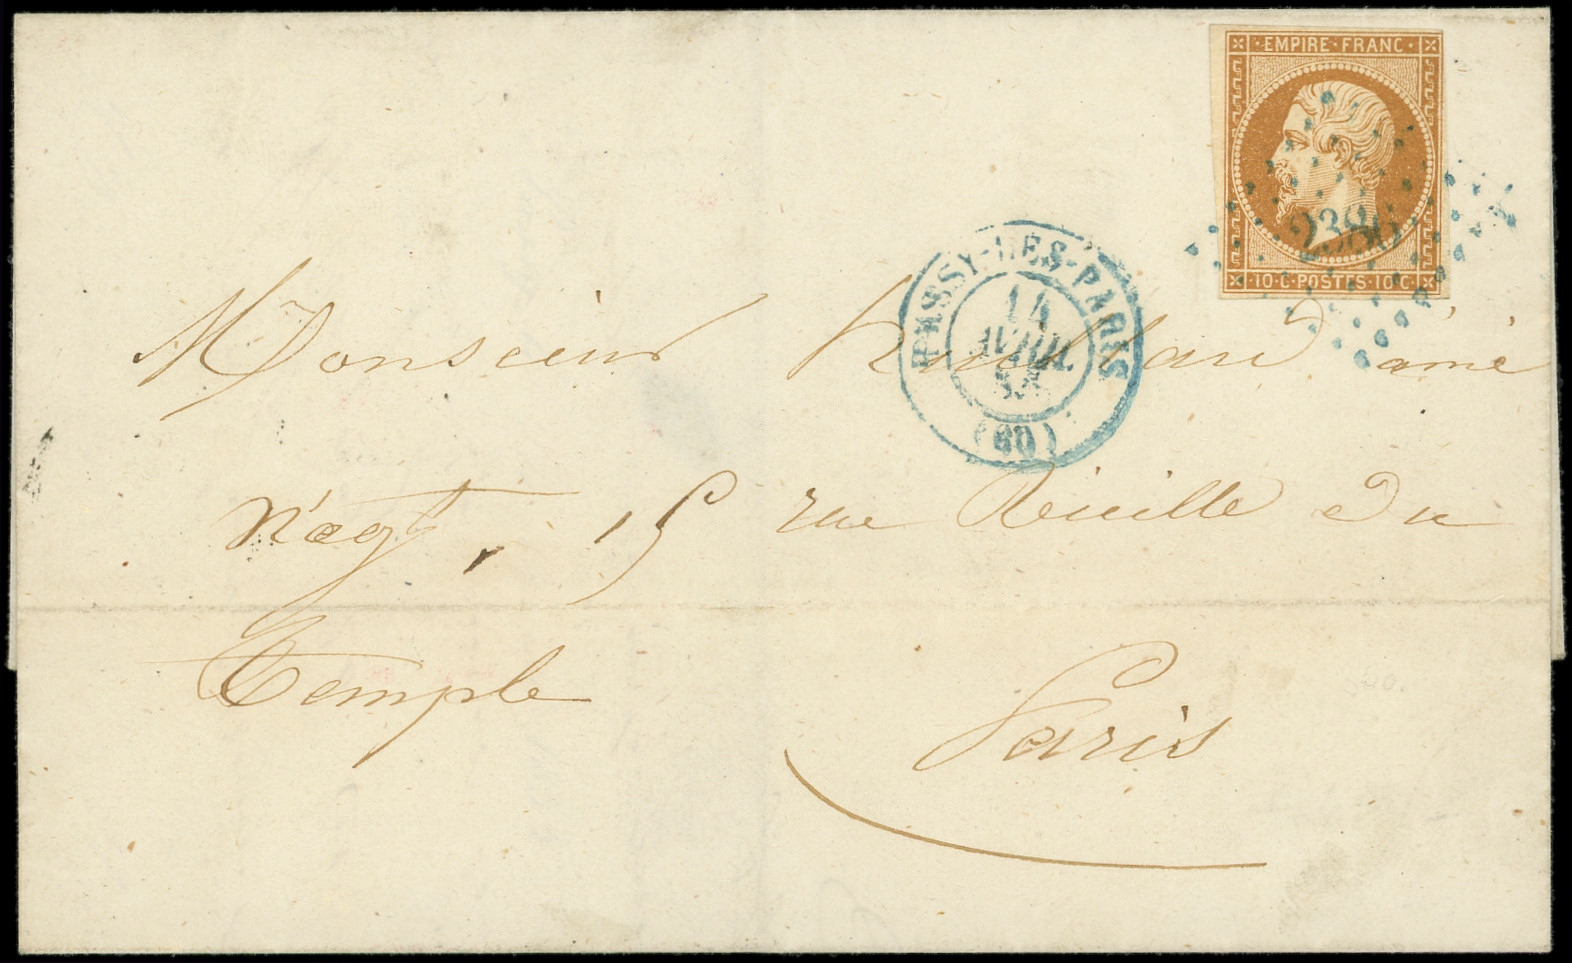 EMPIRE·FRANC·
2386
·10·C·POSTES·10·C·
PASSY-LÈS-PARIS
14
AVRIL
(60)
Monsieur aîné
Négt, 15 rue Vieille du
Temple
Paris